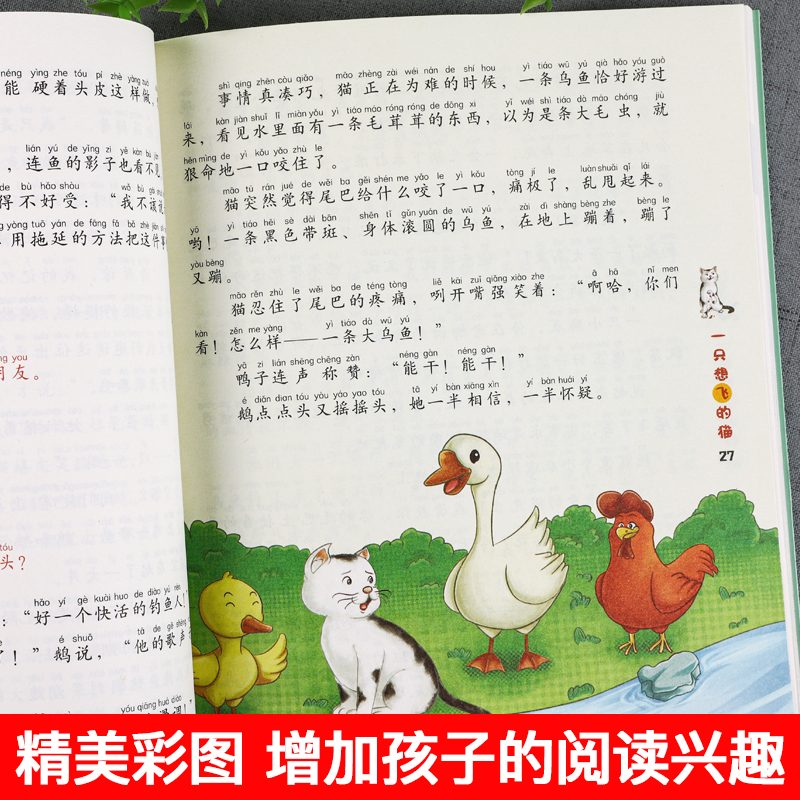 néng yìng zhe tóu pí zhè yàng zuò
能 硬着头皮这样做。
lián yú de yǐng zi yě kàn bu jiàn
，连鱼的影子也看不见
de bù hǎo shòu wǒ bù gāi shuō
得不好受：“我不该说
yòng tuō yán de fāng fǎ bǎ zhè jiàn shì
用拖延的方法把这件事
ng you
朋友。
tóu
头？
hǎo yí gè kuài huo de diào yú rén
：“好一个快活的钓鱼人！
é shuō tā de gē shēng
！”鹅说，“他的歌声
yóu qiāng huá diào
shì qing zhēn còu qiǎo māo zhèng zài wéi nán de shí hou yì tiáo wū yú qià hǎo yóu guò
事情真凑巧，猫正在为难的时候，一条乌鱼恰好游过
lái kàn jiàn shuǐ lǐ miàn yǒu yì tiáo máo róng róng de dōng xi yǐ wéi shì tiáo dà máo chóng jiù
来，看见水里面有一条毛茸茸的东西，以为是条大毛虫，就
hěn mìng de yì kǒu yǎo zhù le
狠命地一口咬住了。
māo tū rán jué de wěi ba gěi shén me yǎo le yì kǒu tòng jí le luàn shuǎi qǐ lái
猫突然觉得尾巴给什么咬了一口，痛极了，乱甩起来。
yō yì tiáo hēi sè dài bān shēn tǐ gǔn yuán de wū yú zài dì shàng bèng zhe bèng le
哟！一条黑色带斑、身体滚圆的乌鱼，在地上蹦着，蹦了
yòu bèng
又蹦。
māo rěn zhù le wěi ba de téng tòng liě kāi zuǐ qiǎng xiào zhe ā hā nǐ men
猫忍住了尾巴的疼痛，咧开嘴强笑着：“啊哈，你们
kàn zěn me yàng yì tiáo dà wū yú
看！怎么样——一条大乌鱼！”
yā zi lián shēng chēng zàn néng gàn néng gàn
鸭子连声称赞：“能干！能干！”
é diǎn dian tóu yòu yáo yao tóu tā yí bàn xiāng xìn yí bàn huái yí
鹅点点头又摇摇头，她一半相信，一半怀疑。
一只想飞的猫
27
精美彩图 增加孩子的阅读兴趣